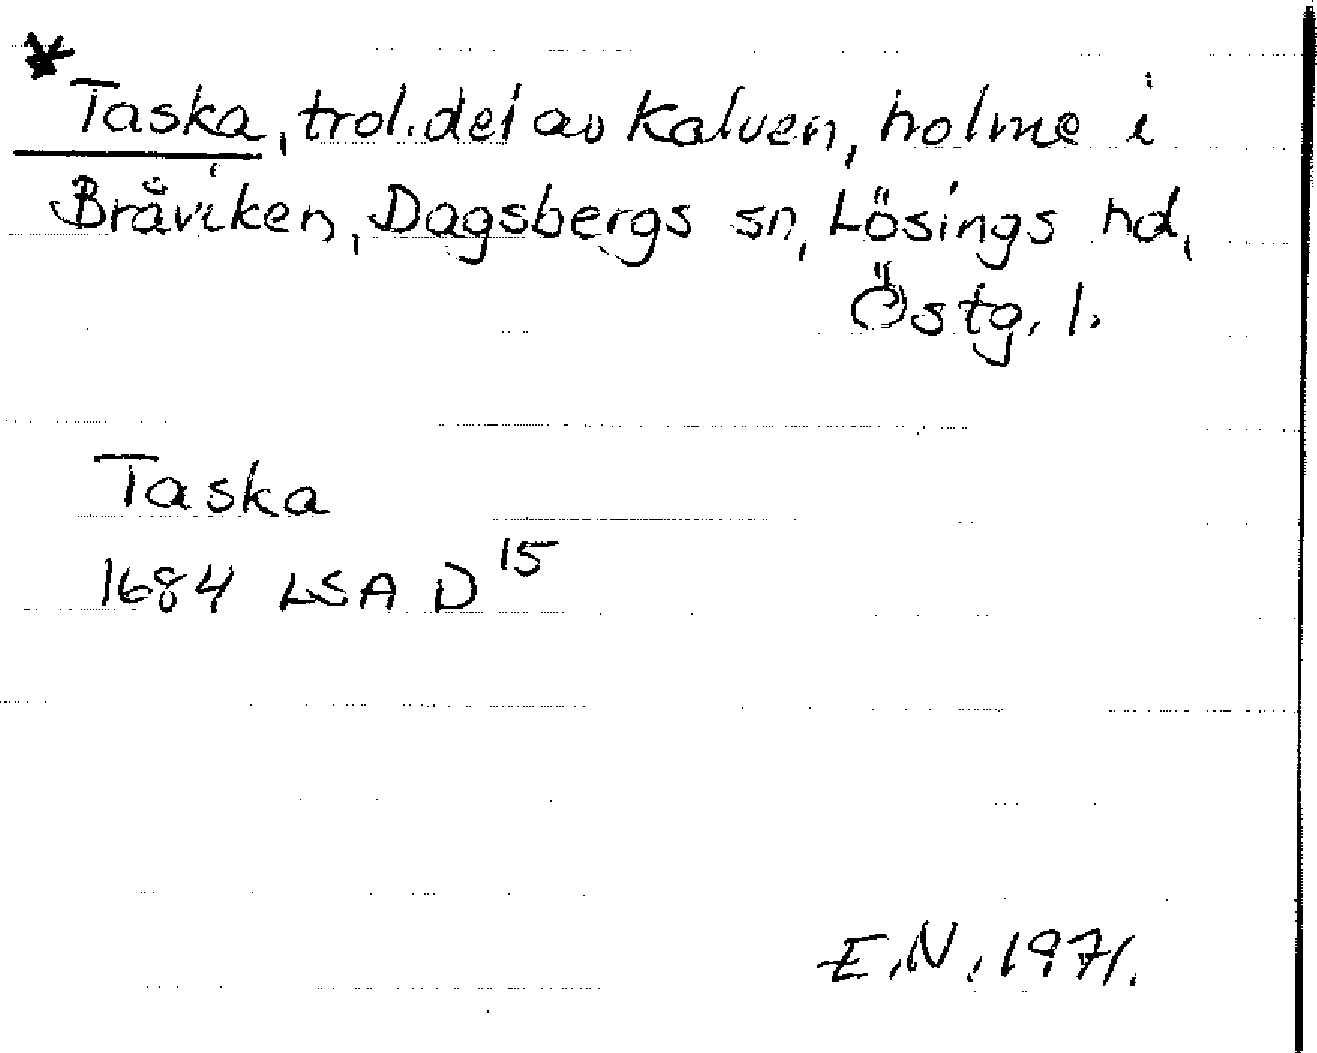 * Taska, trol. del av Kalven, holme i
Bråviken, Dagsbergs sn, Lösings hd,
Östg. l.
Taska
1684 LSA D 15
E.N. 1971.